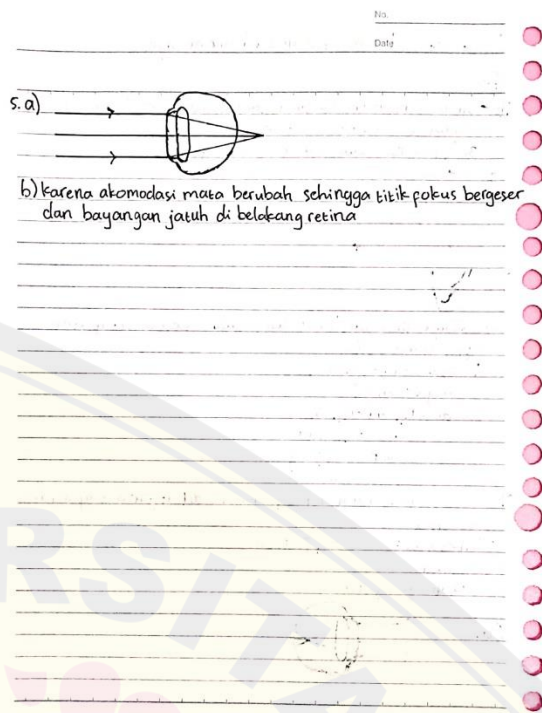 No.
Date
5. a)
b) karena akomodasi mata berubah sehingga titik fokus bergeser
dan bayangan jatuh di belakang retina
RSITA